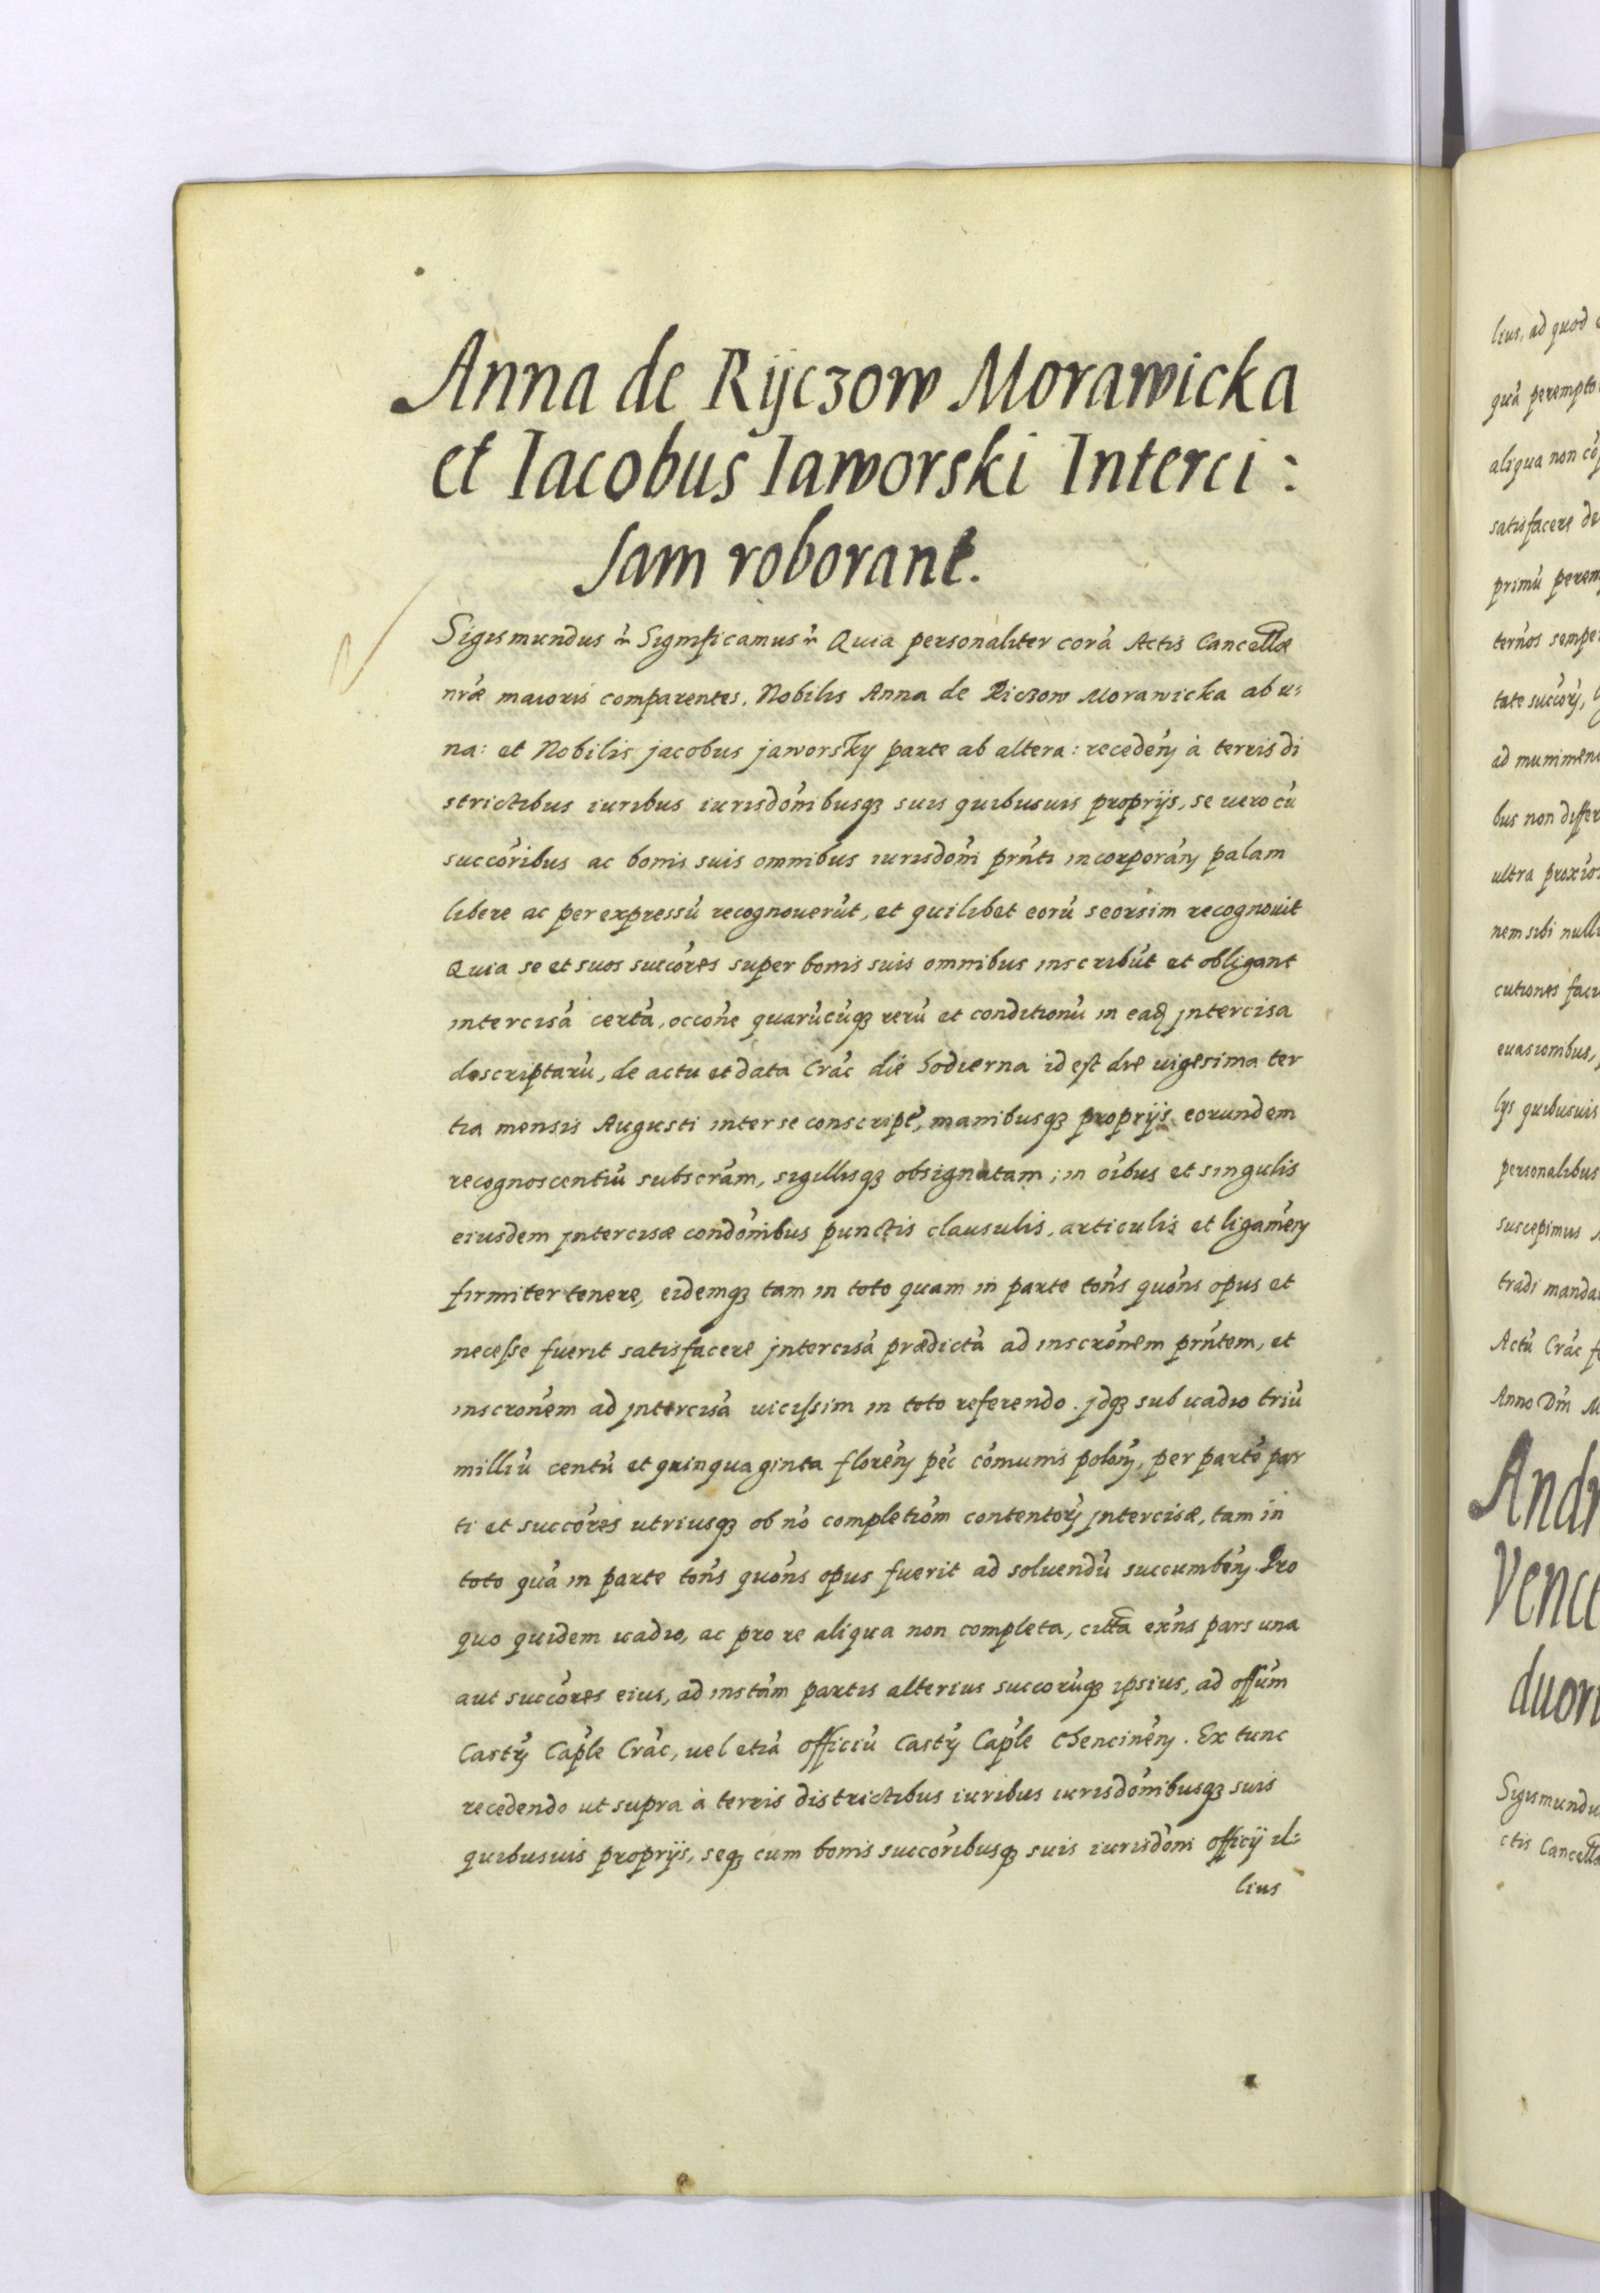 Anna de Rijczow Morawicka
et Iacobus Iaworski Interci:
sam roborant.
Sigismundus Significamus Quia personaliter corā Actis Cancellæ
nræ maioris comparentes. Nobilis Anna de Riczow Morawicka ab u:
na: et Nobilis jacobus jaworsky parte ab altera: receden à terris di
strictibus iuribus iurisdōnibusq3 suis quibusuis proprijs, se uero cū
succoribus ac bonis suis omnibus iurisdōni prnti incorporan palam
libere ac per expressū recognouerūt, et quilibet eorū seorsim recognouit
Quia se et suos succores super bonis suis omnibus inscribūt et obligant
intercisā certā, occōne quarūcūq3 rerū et conditionū in eaq intercisa
descriptarū, de actu et data Crac die hodierna id est die uigesima ter
tia mensis Augusti inter se conscript, manibusq3 proprijs eorundem
recognoscentiū subscram, sigillisq3 obsignatam; in oibus et singulis
eiusdem intercisæ condōnibus punctis clausulis, articulis et ligamen
firmiter tenere, eidemq3 tam in toto quam in parte tons quons opus et
necesse fuerit satisfacere jntercisā prædictā ad inscronem prntem, et
inscronem ad jntercisā uicissim in toto referendo. jdq3 sub uadio triū
milliū centū et quinquaginta floren pec comunis polon, per parte par
ti et succores utriusq3 ob nō completiom contentor intercisæ, tam in
toto quā in parte tons quons opus fuerit ad soluendū succumben. Pro
quo quidem uadio, ac pro re aliqua non completa, citta exns pars una
aut succores eius, ad instam partis alterius succorūq3 ipsius, ad offum
Castr Caple Crac, uel etiā officiū Castr Caple Chencinen. Ex tunc
recedendo ut supra à terris districtibus iuribus iurisdōnibusq3 suis
quibusuis proprijs, seq3 cum bonis succoribusq3 suis iurisdōni officij il:
lius
lius, ad quod
quā perempto
aliqua non
satisfacere de
primū perem
ternos sempe
tate succor,
ad munimen
bus non differ
ultra proxio
nem sibi null
cutiones faci
euasionibus,
lijs quibusuis
personalibus
suscepimus
tradi manda
Actū Crac
Anno Dm M
Andr
Vence
duor
Sigismundu
ctis Cancella